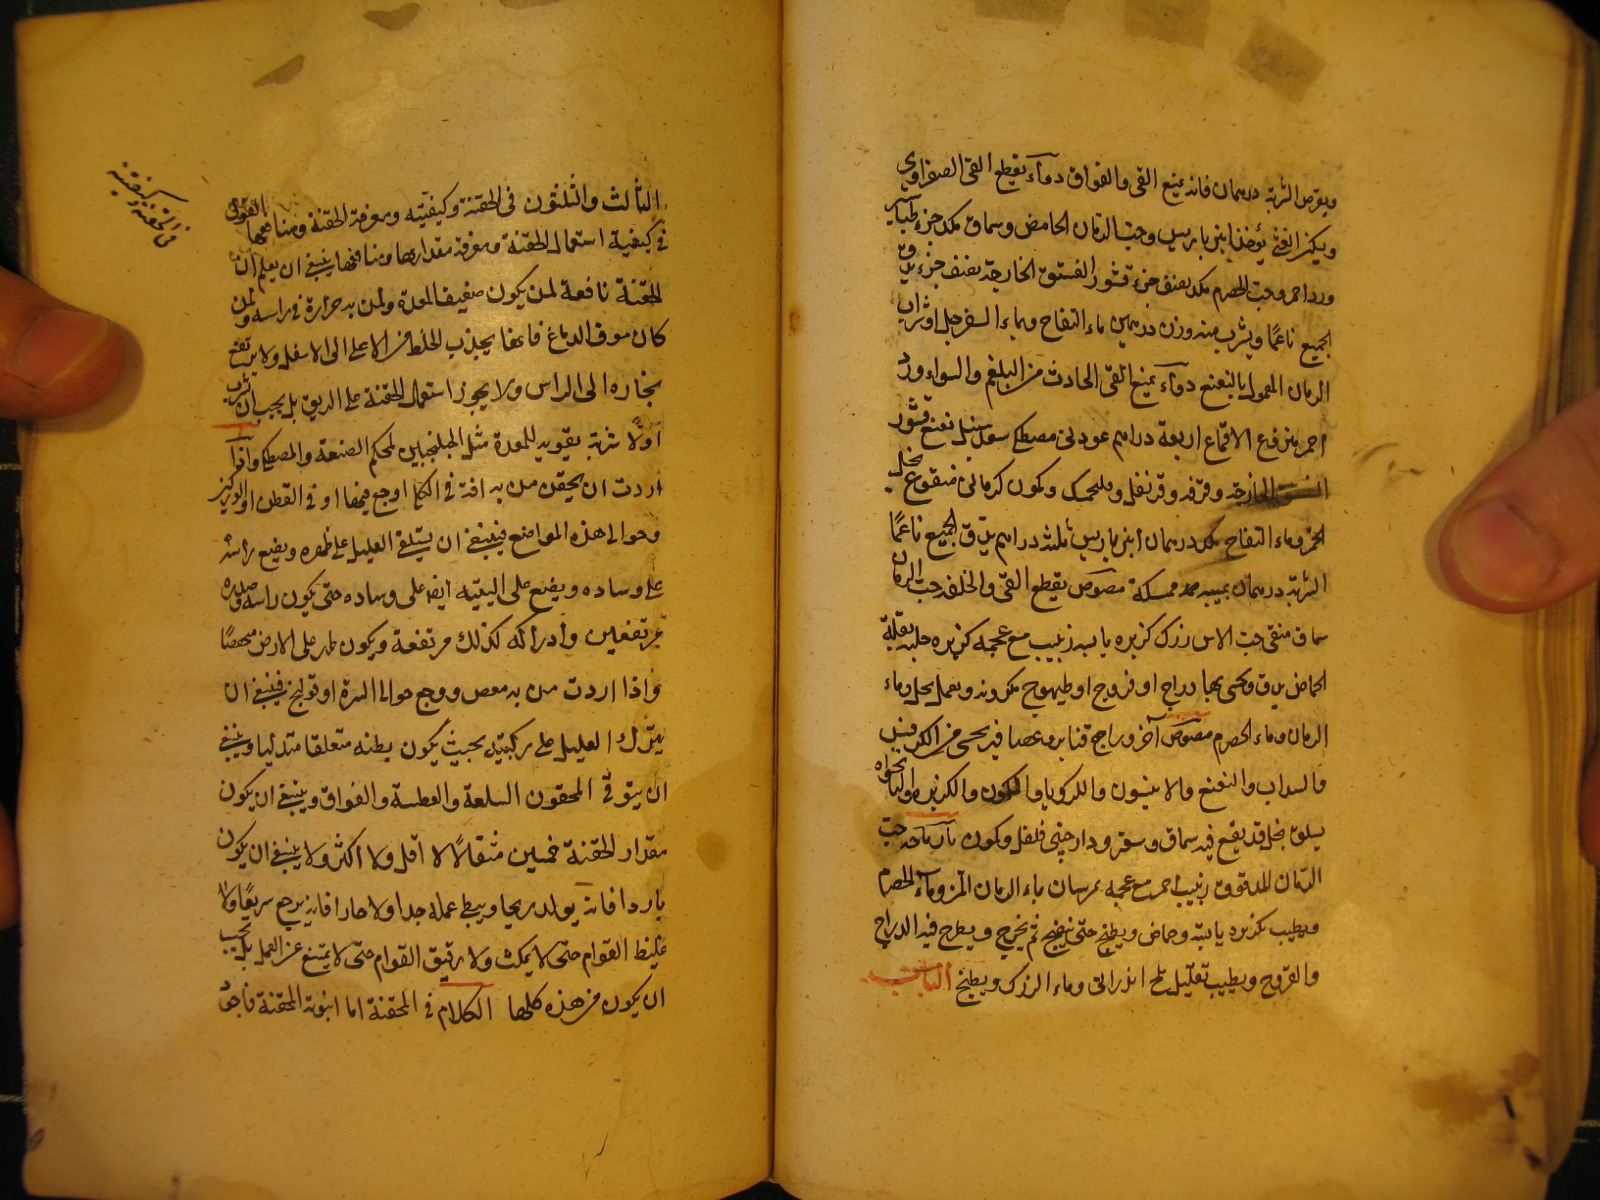 ويقرص الشربة درهمان فانه يمنع القى والفواق دوآء يقطع القى الصفراوى
ويكن الغثى يؤخذ انبر باريس وحب الرمان الحامض وسماق مكد جزء طباشير
ورد احمر وحب الحصرم مكد نصف جزء قشور الفستق الخارجة نصف جزء يدق
الجميع ناعمًا ويشرب منه وزن درهمين بماء التفاح وبماء السفرجل او شراب
الرمان المعمول بالنعنع دوآء يمنع القى الحادث من البلغم والسوداء ورد
احمر منزوع الاقماع اربعة دراهم عود نى مصطكى سعد سنبل نعنع قشور
الفستق الخارجة وقرفه وقرنفل وكمون كرمانى منقوع بخل
الخمر وماء التفاح مكد درهمان انبر باريس ثلثة دراهم يدق الجميع ناعمًا
الشربة درهمان بميبه ممسكة مصوص يقطع القى والخلفه حب الرمان
سماق منقى حب الاس زرك كزبره يابسه زبيب مع عجمه كزبره بقلة
الحماض يدق ويحشى بها دراج او فروج او طيهوج ويعمل بخل وماء
الرمان وماء الحصرم مصوص آخر دراج فيه يحشى من الكرفس
والسداب والنعنع والانيسون والكرويا والكمون والكزبره والنانخواه
يسلق بخل قد يقع فيه سماق وسعتر ودارچينى فلفل وكمون حب
الرمان المدقوق زبيب احمر مع عجمه يمرسان بماء الرمان المز وماء الحصرم
ويطيب بكزبره يابسة وحماض ويطبخ حتى ينضج ثم يخرج ويطرح فيه الدراج
والفروج ويطيب بقليل ملح اندرانى وماء الزرك ويطبخ الباب
الثالث والثلثون فى الحقنة وكيفيته ومعرفة الحقنة ومنافعها القول
فى كيفية استعمال الحقنة ومعرفة مقدارها ومنافعها ينبغى ان يعلم ان
الحقنة نافعة لمن يكون ضعيف المعدة ولمن به حرارة فى راسه ولمن
كان موف الدماغ فانها يجذب الخلط من الاعلى الى الاسفل ولا يرتفع
بخاره الى الراس ولا يجوز استعمال الحقنة على الريق بل يجب ان يشرب
اولا شربة يقويه للمعدة مثل الجلنجبين لمحكم الصنعة والمصطكى واذا
اردت ان يحقن من به افة فى الكلى او وجع فيها او فى القطن
وحوالى هذه المواضع فينبغى ان يستلقى العليل على ظهره ويضع راسه
على وساده ويضع على اليتيه ايضا على وساده حتى يكون راسه وصدره
مرتفعين وأوراكه كذلك مرتفعة ويكون ظهره على الارض
واذا اردت من به مغص ووجع حوالى السرة او قولنج فينبغى ان
يترك العليل على ركبتيه بحيث يكون بطنه متعلقا متدليا وينبغى
ان يتوقى المحقون السلعة والعطسة والفواق وينبغى ان يكون
مقدار الحقنة خمسين مثقالًا لا اقل ولا اكثر ولا ينبغى ان يكون
باردا فانه يولد ريحا ويبطى عمله جدا ولا حارا فانه يرجع سريعًا ولا
غليظ القوام حتى لا يمكث ولا رقيق القوام حتى لا يمتنع عن العمل بل يجب
ان يكون من هذه كلها الكلام فى المحقنة اما انبوبة المحقنة فاجود
فى الحقنة وكيفيته